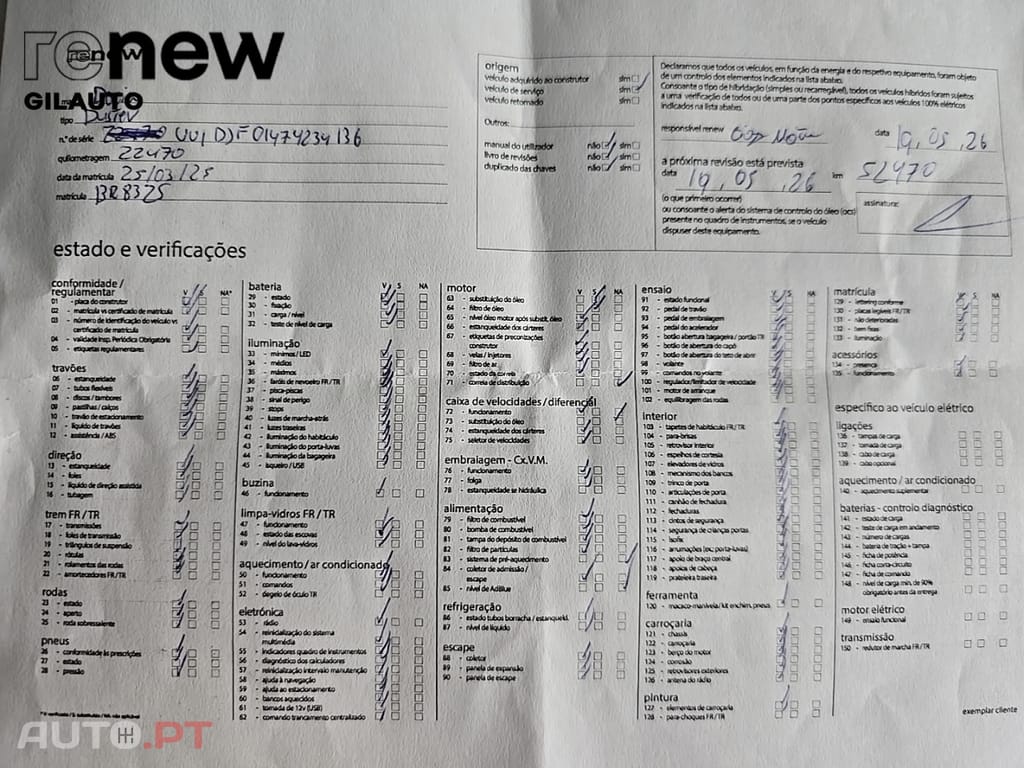 renew
GILAUTO
tipo Duster
n.º de série UU1DJF01474234136
quilometragem 22470
data da matrícula 25/03/25
matrícula BR83ZS
origem
veículo adquirido ao construtor sim
veículo de serviço sim
veículo retomado sim
Outros:
manual do utilizador não sim
livro de revisões não sim
duplicado das chaves não sim
Declaramos que todos os veículos, em função da energia e do respetivo equipamento, foram objeto
de um controlo dos elementos indicados na lista abaixo.
Consoante o tipo de hibridação (simples ou recarregável), todos os veículos híbridos foram sujeitos
a uma verificação de todos ou de uma parte dos pontos específicos aos veículos 100% elétricos
indicados na lista abaixo.
responsável renew
data 19.05.26
a próxima revisão está prevista
data 19.05.26 km 52470
(o que primeiro ocorrer)
ou consoante o alerta do sistema de controlo do óleo (ocs)
presente no quadro de instrumentos, se o veículo
dispuser deste equipamento.
assinatura:
estado e verificações
conformidade /
regulamentar V S NA*
01 - placa do construtor
02 - matrícula vs certificado de matrícula
03 - número de identificação do veículo vs
certificado de matrícula
04 - validade Insp. Periódica Obrigatória
05 - etiquetas regulamentares
travões
06 - estanqueidade
07 - tubos flexíveis
08 - discos / tambores
09 - pastilhas / calços
10 - travão de estacionamento
11 - líquido de travões
12 - assistência / ABS
direção
13 - estanqueidade
14 - foles
15 - líquido de direção assistida
16 - tubagem
trem FR / TR
17 - transmissões
18 - foles de transmissão
19 - triângulos de suspensão
20 - rótulas
21 - rolamentos das rodas
22 - amortecedores FR / TR
rodas
23 - estado
24 - aperto
25 - roda sobressalente
pneus
26 - conformidade às prescrições
27 - estado
28 - pressão
*V verificado / S substituído / NA não aplicável
bateria V S NA
29 - estado
30 - fixação
31 - carga / nível
32 - teste de nível de carga
iluminação
33 - mínimos / LED
34 - médios
35 - máximos
36 - faróis de nevoeiro FR / TR
37 - pisca-piscas
38 - sinal de perigo
39 - stops
40 - luzes de marcha-atrás
41 - luzes traseiras
42 - iluminação do habitáculo
43 - iluminação do porta-luvas
44 - iluminação da bagageira
45 - isqueiro / USB
buzina
46 - funcionamento
limpa-vidros FR / TR
47 - funcionamento
48 - estado das escovas
49 - nível do lava-vidros
aquecimento / ar condicionado
50 - funcionamento
51 - comandos
52 - degelo de óculo TR
eletrónica
53 - rádio
54 - reinicialização do sistema
multimédia
55 - indicadores quadro de instrumentos
56 - diagnóstico dos calculadores
57 - reinicialização intervalo manutenção
58 - ajuda à navegação
59 - ajuda ao estacionamento
60 - bancos aquecidos
61 - tomada de 12v (USB)
62 - comando trancamento centralizado
motor V S NA
63 - substituição do óleo
64 - filtro de óleo
65 - nível óleo motor após substit. óleo
66 - estanqueidade dos cárteres
67 - etiquetas de preconizações
construtor
68 - velas / injetores
69 - filtro de ar
70 - estado da correia
71 - correia de distribuição
caixa de velocidades / diferencial
72 - funcionamento
73 - substituição do óleo
74 - estanqueidade dos cárteres
75 - seletor de velocidades
embraiagem - Cx.V.M.
76 - funcionamento
77 - folga
78 - estanqueidade se hidráulica
alimentação
79 - filtro de combustível
80 - bomba de combustível
81 - tampa do depósito de combustível
82 - filtro de partículas
83 - sistema de pré-aquecimento
84 - coletor de admissão /
escape
85 - nível de AdBlue
refrigeração
86 - estado tubos borracha / estanqueid.
87 - nível de líquido
escape
88 - coletor
89 - panela de expansão
90 - panela de escape
ensaio V S NA
91 - estado funcional
92 - pedal de travão
93 - pedal de embraiagem
94 - pedal do acelerador
95 - botão abertura bagageira / portão TR
96 - botão de abertura do capô
97 - botão de abertura do teto de abrir
98 - volante
99 - comandos no volante
100 - regulador/limitador de velocidade
101 - motor de arranque
102 - equilibragem das rodas
interior
103 - tapetes de habitáculo FR / TR
104 - para-brisas
105 - retrovisor interior
106 - espelhos de cortesia
107 - elevadores de vidros
108 - mecanismo dos bancos
109 - trinco de porta
110 - articulações de porta
111 - canhão de fechadura
112 - fechaduras
113 - cintos de segurança
114 - segurança de crianças portas
115 - isofix
116 - arrumações (ex: porta-luvas)
117 - apoio de braço central
118 - apoios de cabeça
119 - prateleira traseira
ferramenta
120 - macaco-manivela / kit enchim. pneus
carroçaria
121 - chassis
122 - carroçaria
123 - berço do motor
124 - corrosão
125 - retrovisores exteriores
126 - antena do rádio
pintura
127 - elementos de carroçaria
128 - para-choques FR / TR
matrícula V S NA
129 - lettering conforme
130 - placas legíveis FR / TR
131 - não deterioradas
132 - bem fixas
133 - iluminação
acessórios
134 - presença
135 - funcionamento
específico ao veículo elétrico
ligações
136 - tampas de carga
137 - tomada de carga
138 - cabo de carga
139 - cabo opcional
aquecimento / ar condicionado
140 - aquecimento suplementar
baterias - controlo diagnóstico
141 - estado de carga
142 - teste de carga em andamento
143 - número de cargas
144 - bateria de tração + tampa
145 - ficha de potência
146 - ficha corta-circuito
147 - ficha de comando
148 - nível de carga mín. de 90%
obrigatório antes da entrega
motor elétrico
149 - ensaio funcional
transmissão
150 - redutor de marcha FR / TR
exemplar cliente
AUTO.PT